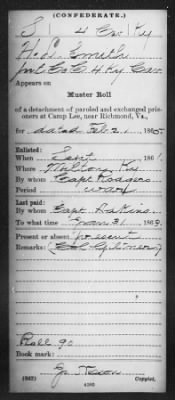 (CONFEDERATE.)
S 4 Cav Ky
H. S. Smith
Pvt Co C, 4 Ky Cav
Appears on
Muster Roll
of a detachment of paroled and exchanged pris-
oners at Camp Lee, near Richmond, Va.,
for dated Feb 21 1865
Enlisted:
When Sept 1861
Where Milton Ky
By whom Capt Rodgers
Period war
Last paid:
By whom Capt Adkins
To what time 31 186
Present or absent present
Remarks:
Roll 90
Book mark:
(642) 4280 Copyist.